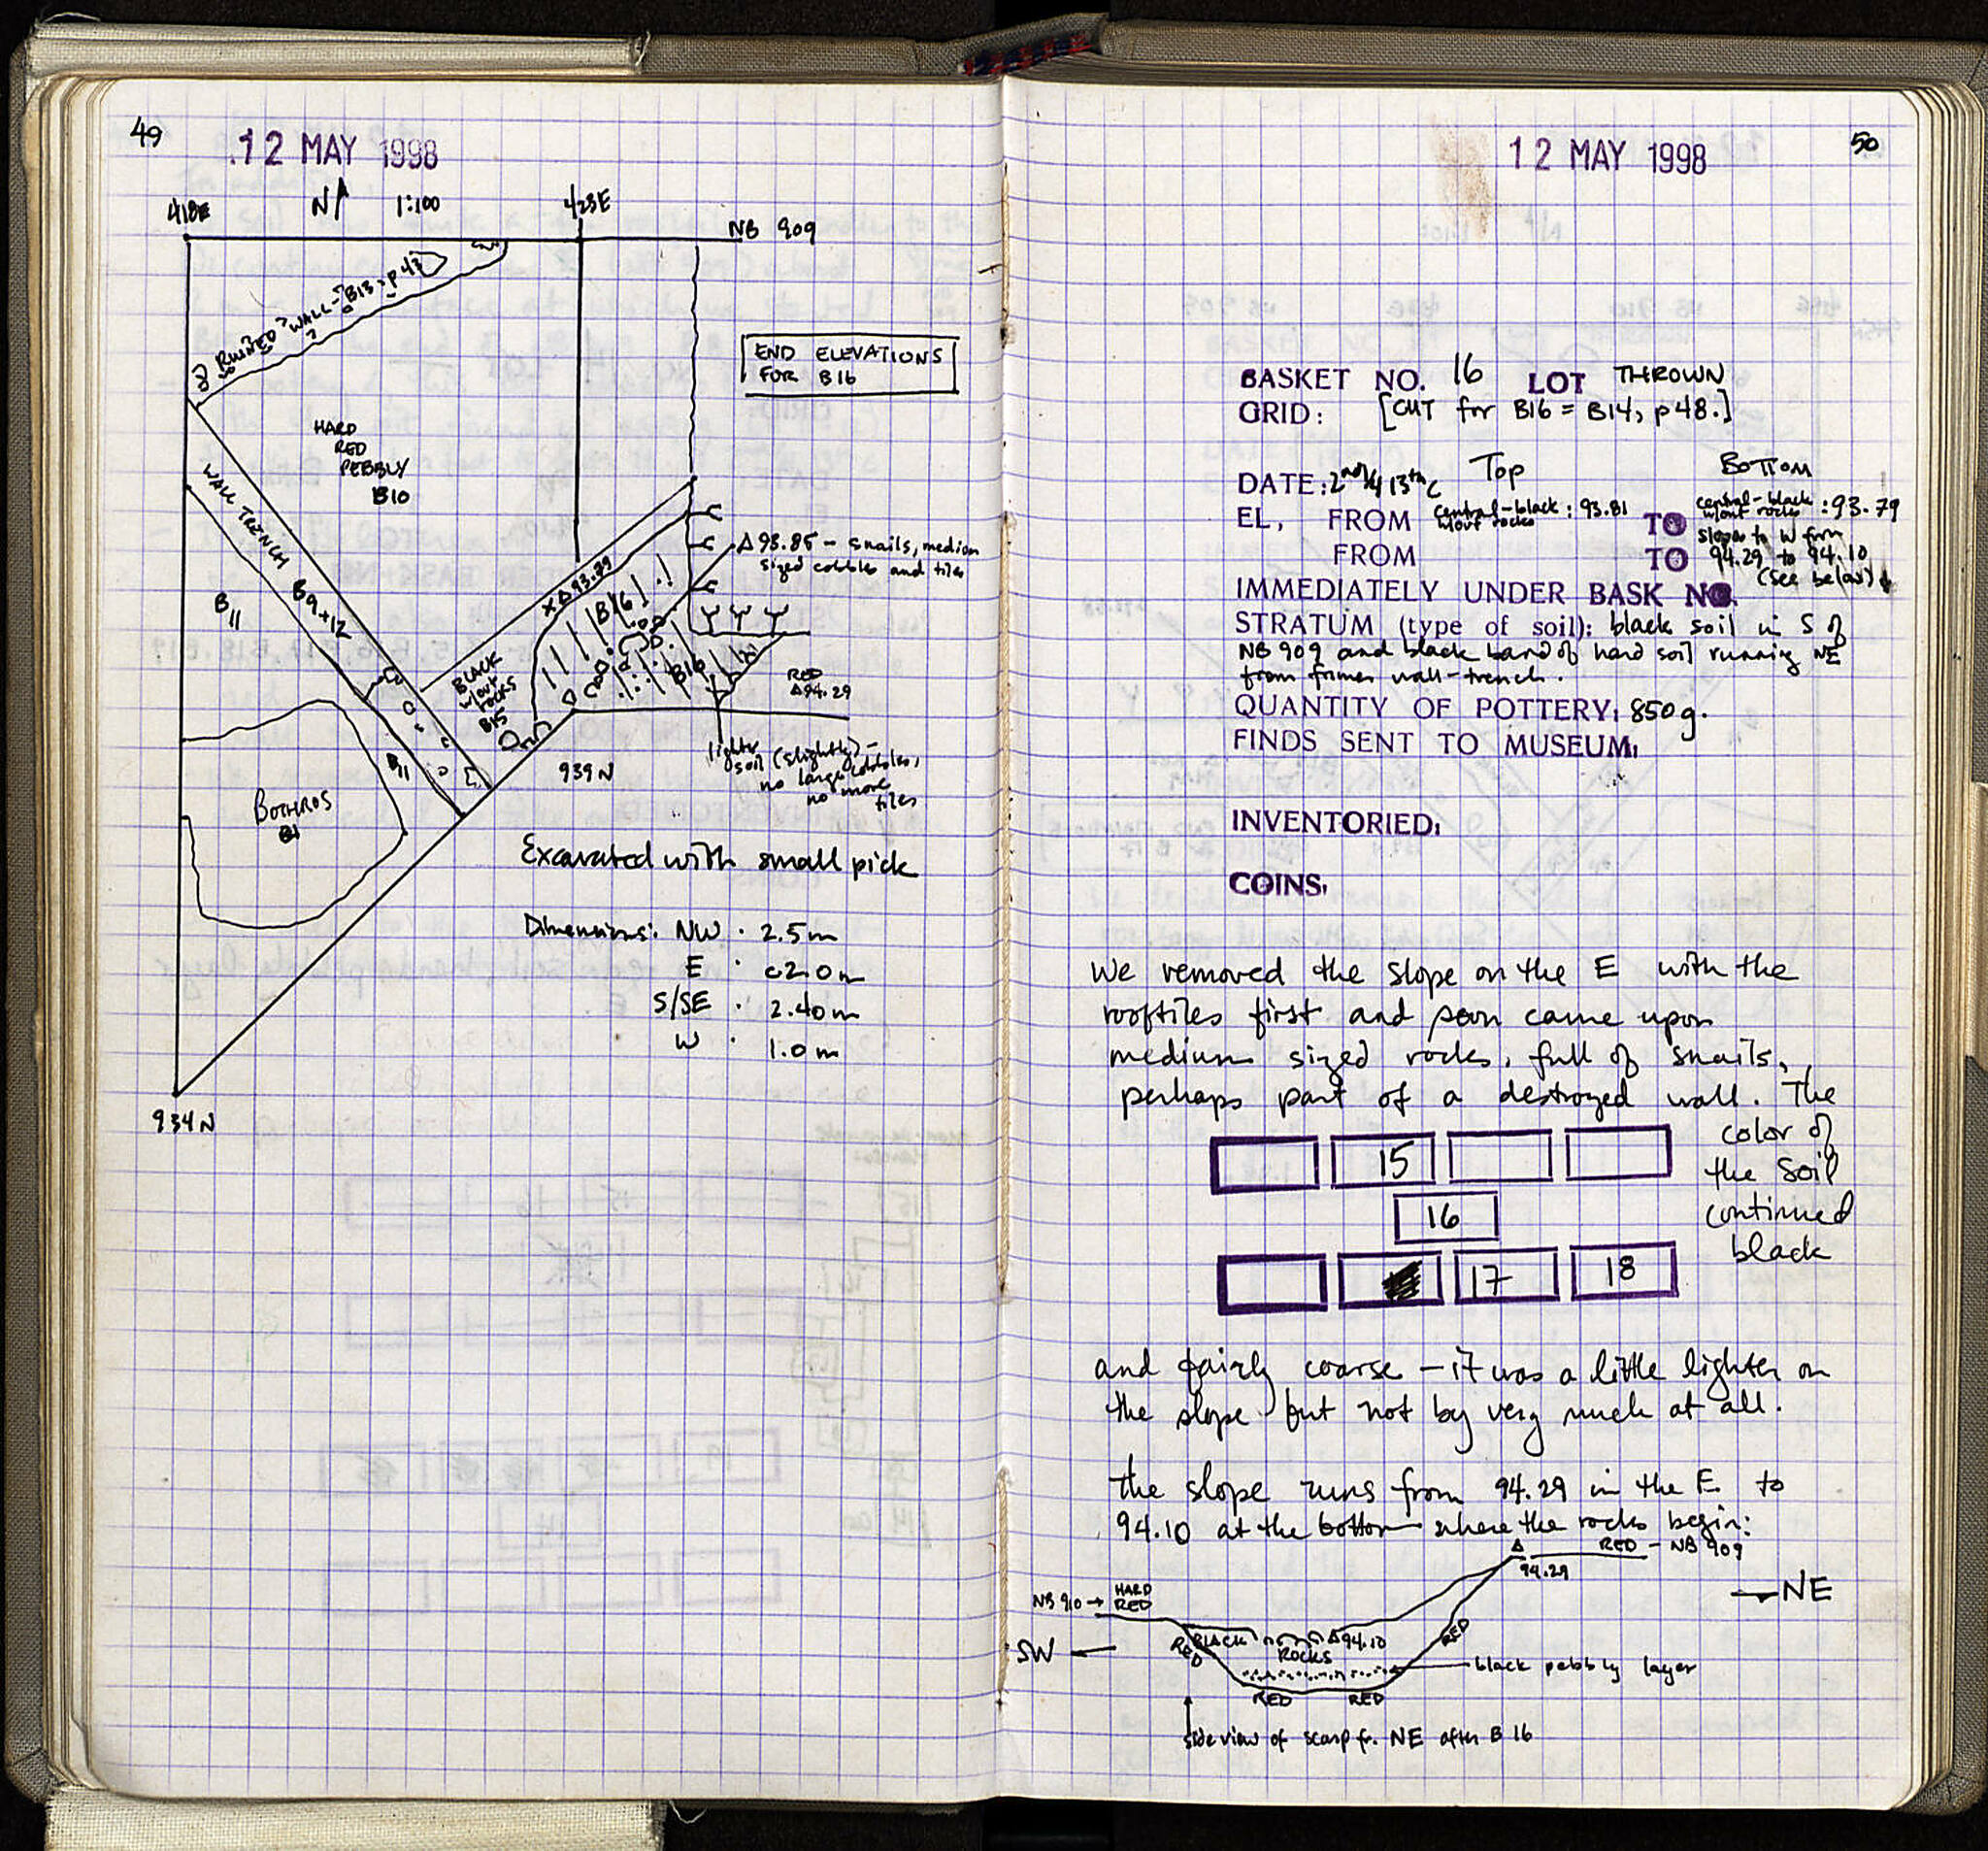 49
12 MAY 1998
418E
N
1:100
423E
NB 909
ROBBED? WALL-? B13 = p 47
?
END ELEVATIONS
FOR B16
HARD
RED
PEBBLY
B10
WALL TRENCH B9+12
B11
X Δ93.79
Δ 93.85 - snails, medium
sized cobbles and tiles
B16
B16
BLACK
w/out
rocks
B15
RED
Δ94.29
B11
939N
lighter
soil (slightly) -
no large cobbles,
no more
tiles
BOTHROS
B1
Excavated with small pick
Dimensions: NW · 2.5m
E · c2.0m
S/SE · 2.40m
W · 1.0m
934N
12 MAY 1998
50
BASKET NO. 16 LOT THROWN
GRID: [CUT for B16 = B14, p48.]
Top
Bottom
DATE: 2nd 1/4 13th c
EL, FROM central-black w/out rocks : 93.81 TO central-black w/out rocks : 93.79
FROM TO slopes to W from 94.29 to 94.10
(see below)
IMMEDIATELY UNDER BASK NO.
STRATUM (type of soil): black soil in S of
NB 909 and black band of hard soil running NE
from former wall-trench.
QUANTITY OF POTTERY: 850g.
FINDS SENT TO MUSEUM:
INVENTORIED:
COINS:
We removed the slope on the E with the
rooftiles first and soon came upon
medium sized rocks, full of snails,
perhaps part of a destroyed wall. The
color of
the soil
continued
black
15
16
17
18
and fairly coarse - it was a little lighter on
the slope but not by very much at all.
the slope runs from 94.29 in the E to
94.10 at the bottom where the rocks begin:
Δ
94.29
RED - NB 909
NB 910 →
HARD
RED
NE
SW
BLACK
Δ94.10
RED
ROCKS
RED
black pebbly layer
RED
RED
side view of scarp fr. NE after B 16